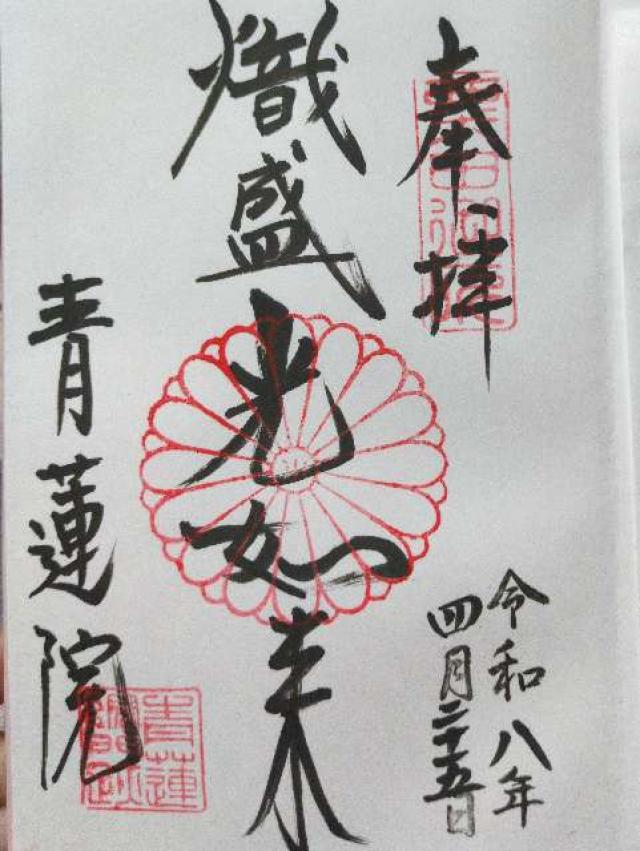 奉拝
令和八年
四月二十五日
熾盛光如来
青蓮院